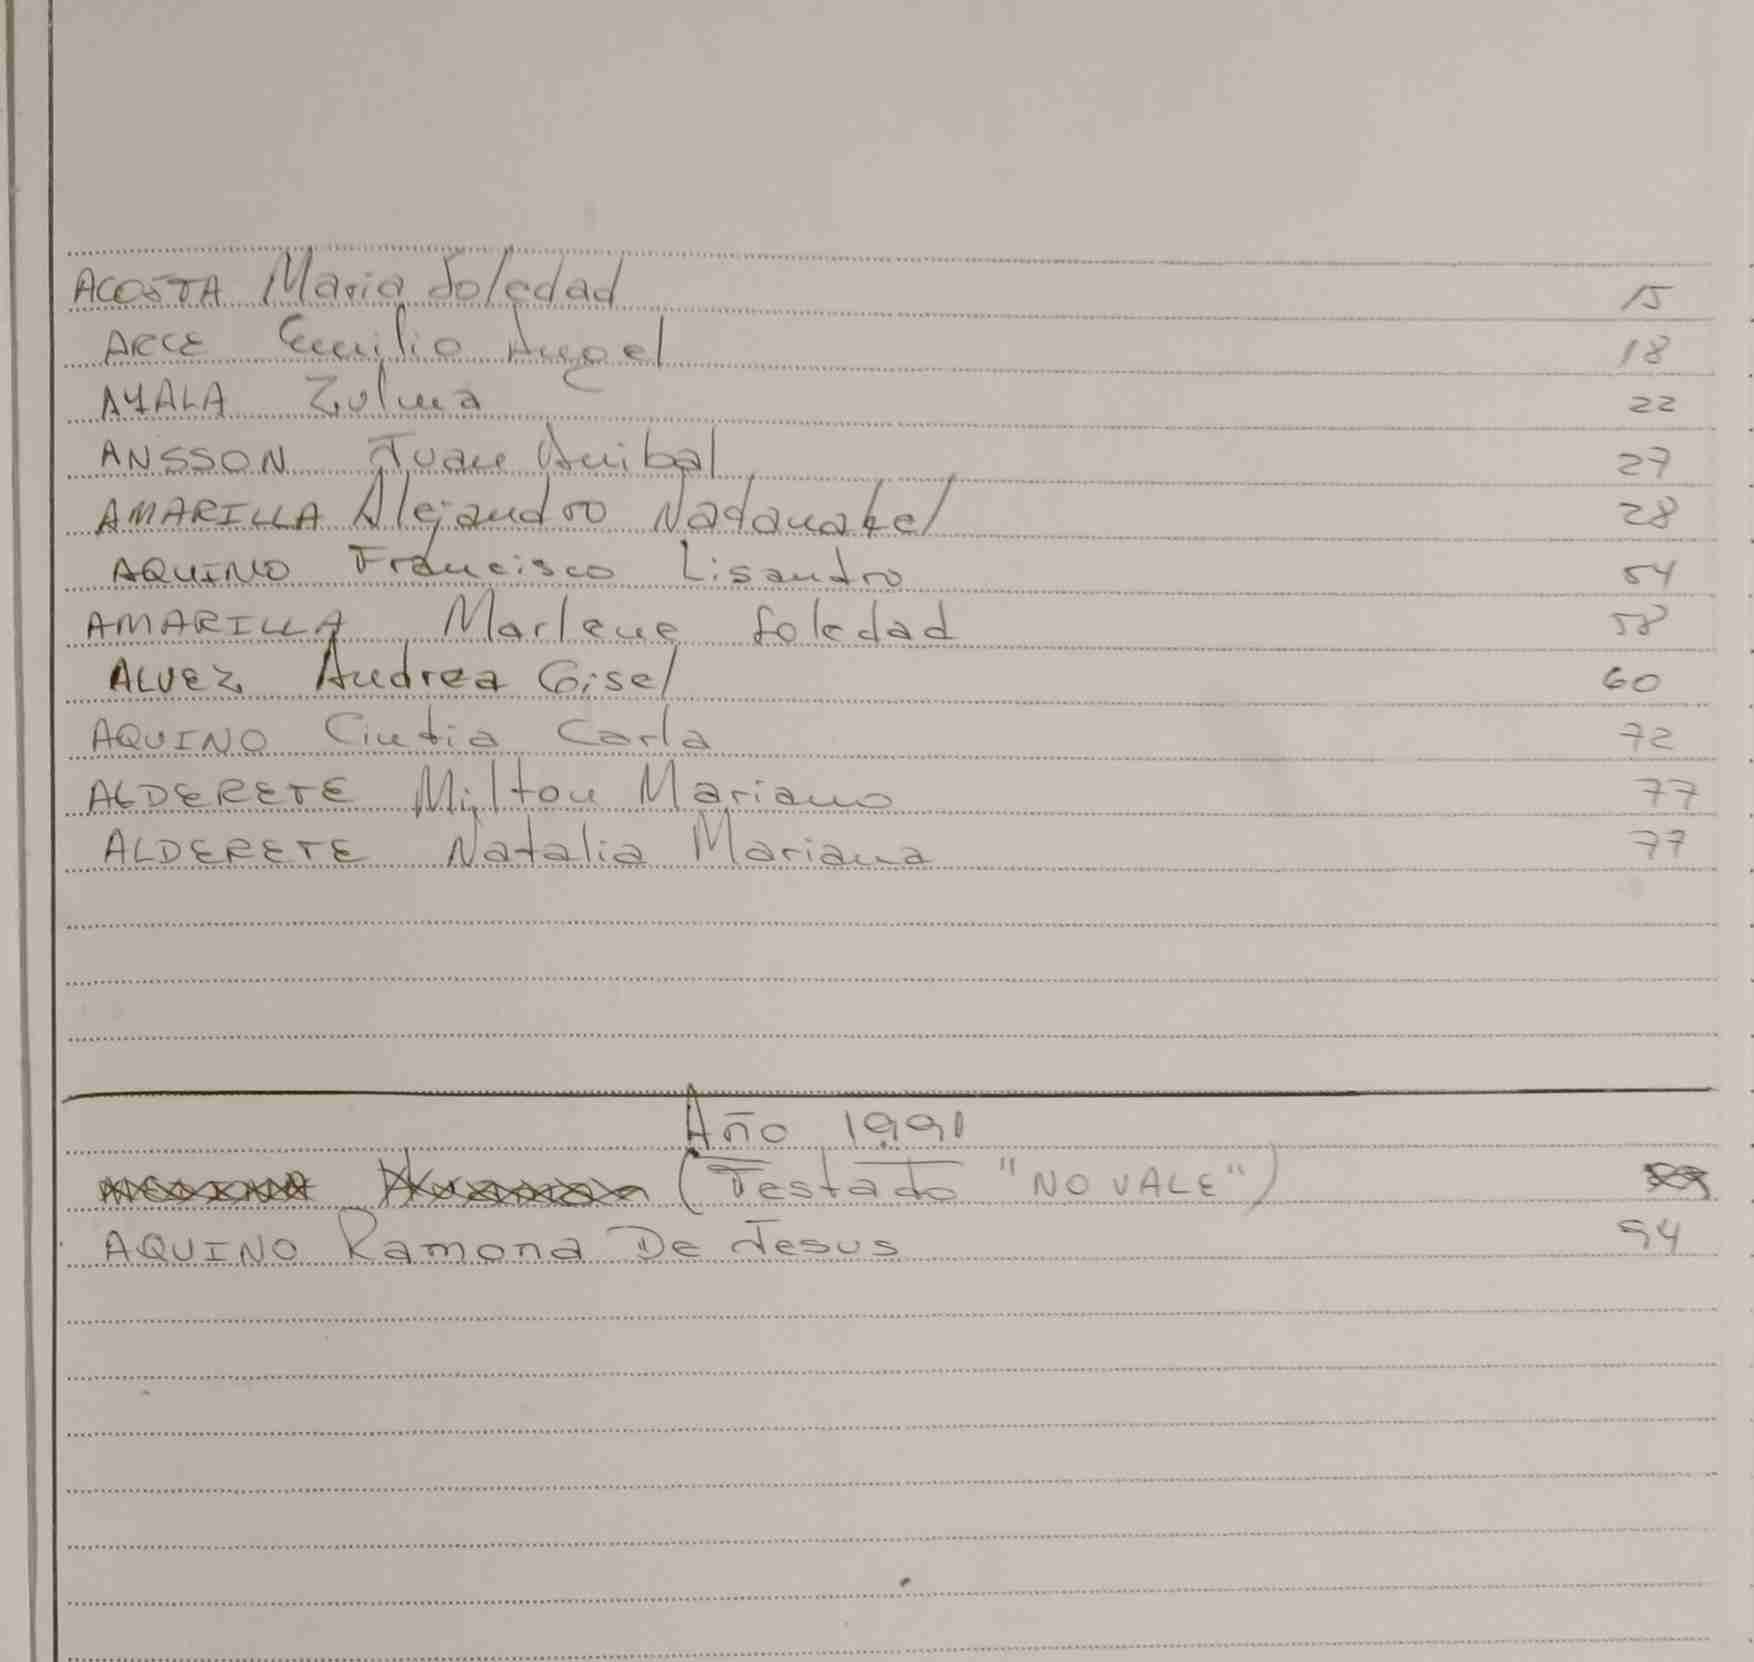 ACOSTA Maria Soledad 15
ARCE Emilio Angel 18
AYALA Zulma 22
ANSSON Juan Anibal 27
AMARILLA Alejandro Natanahel 28
AQUINO Francisco Lisandro 54
AMARILLA Marlene Soledad 58
ALVEZ Andrea Gisel 60
AQUINO Cintia Carla 72
ALDERETE Milton Mariano 77
ALDERETE Natalia Mariana 77
Año 1991
(Testado "NO VALE")
AQUINO Ramona De Jesus 94